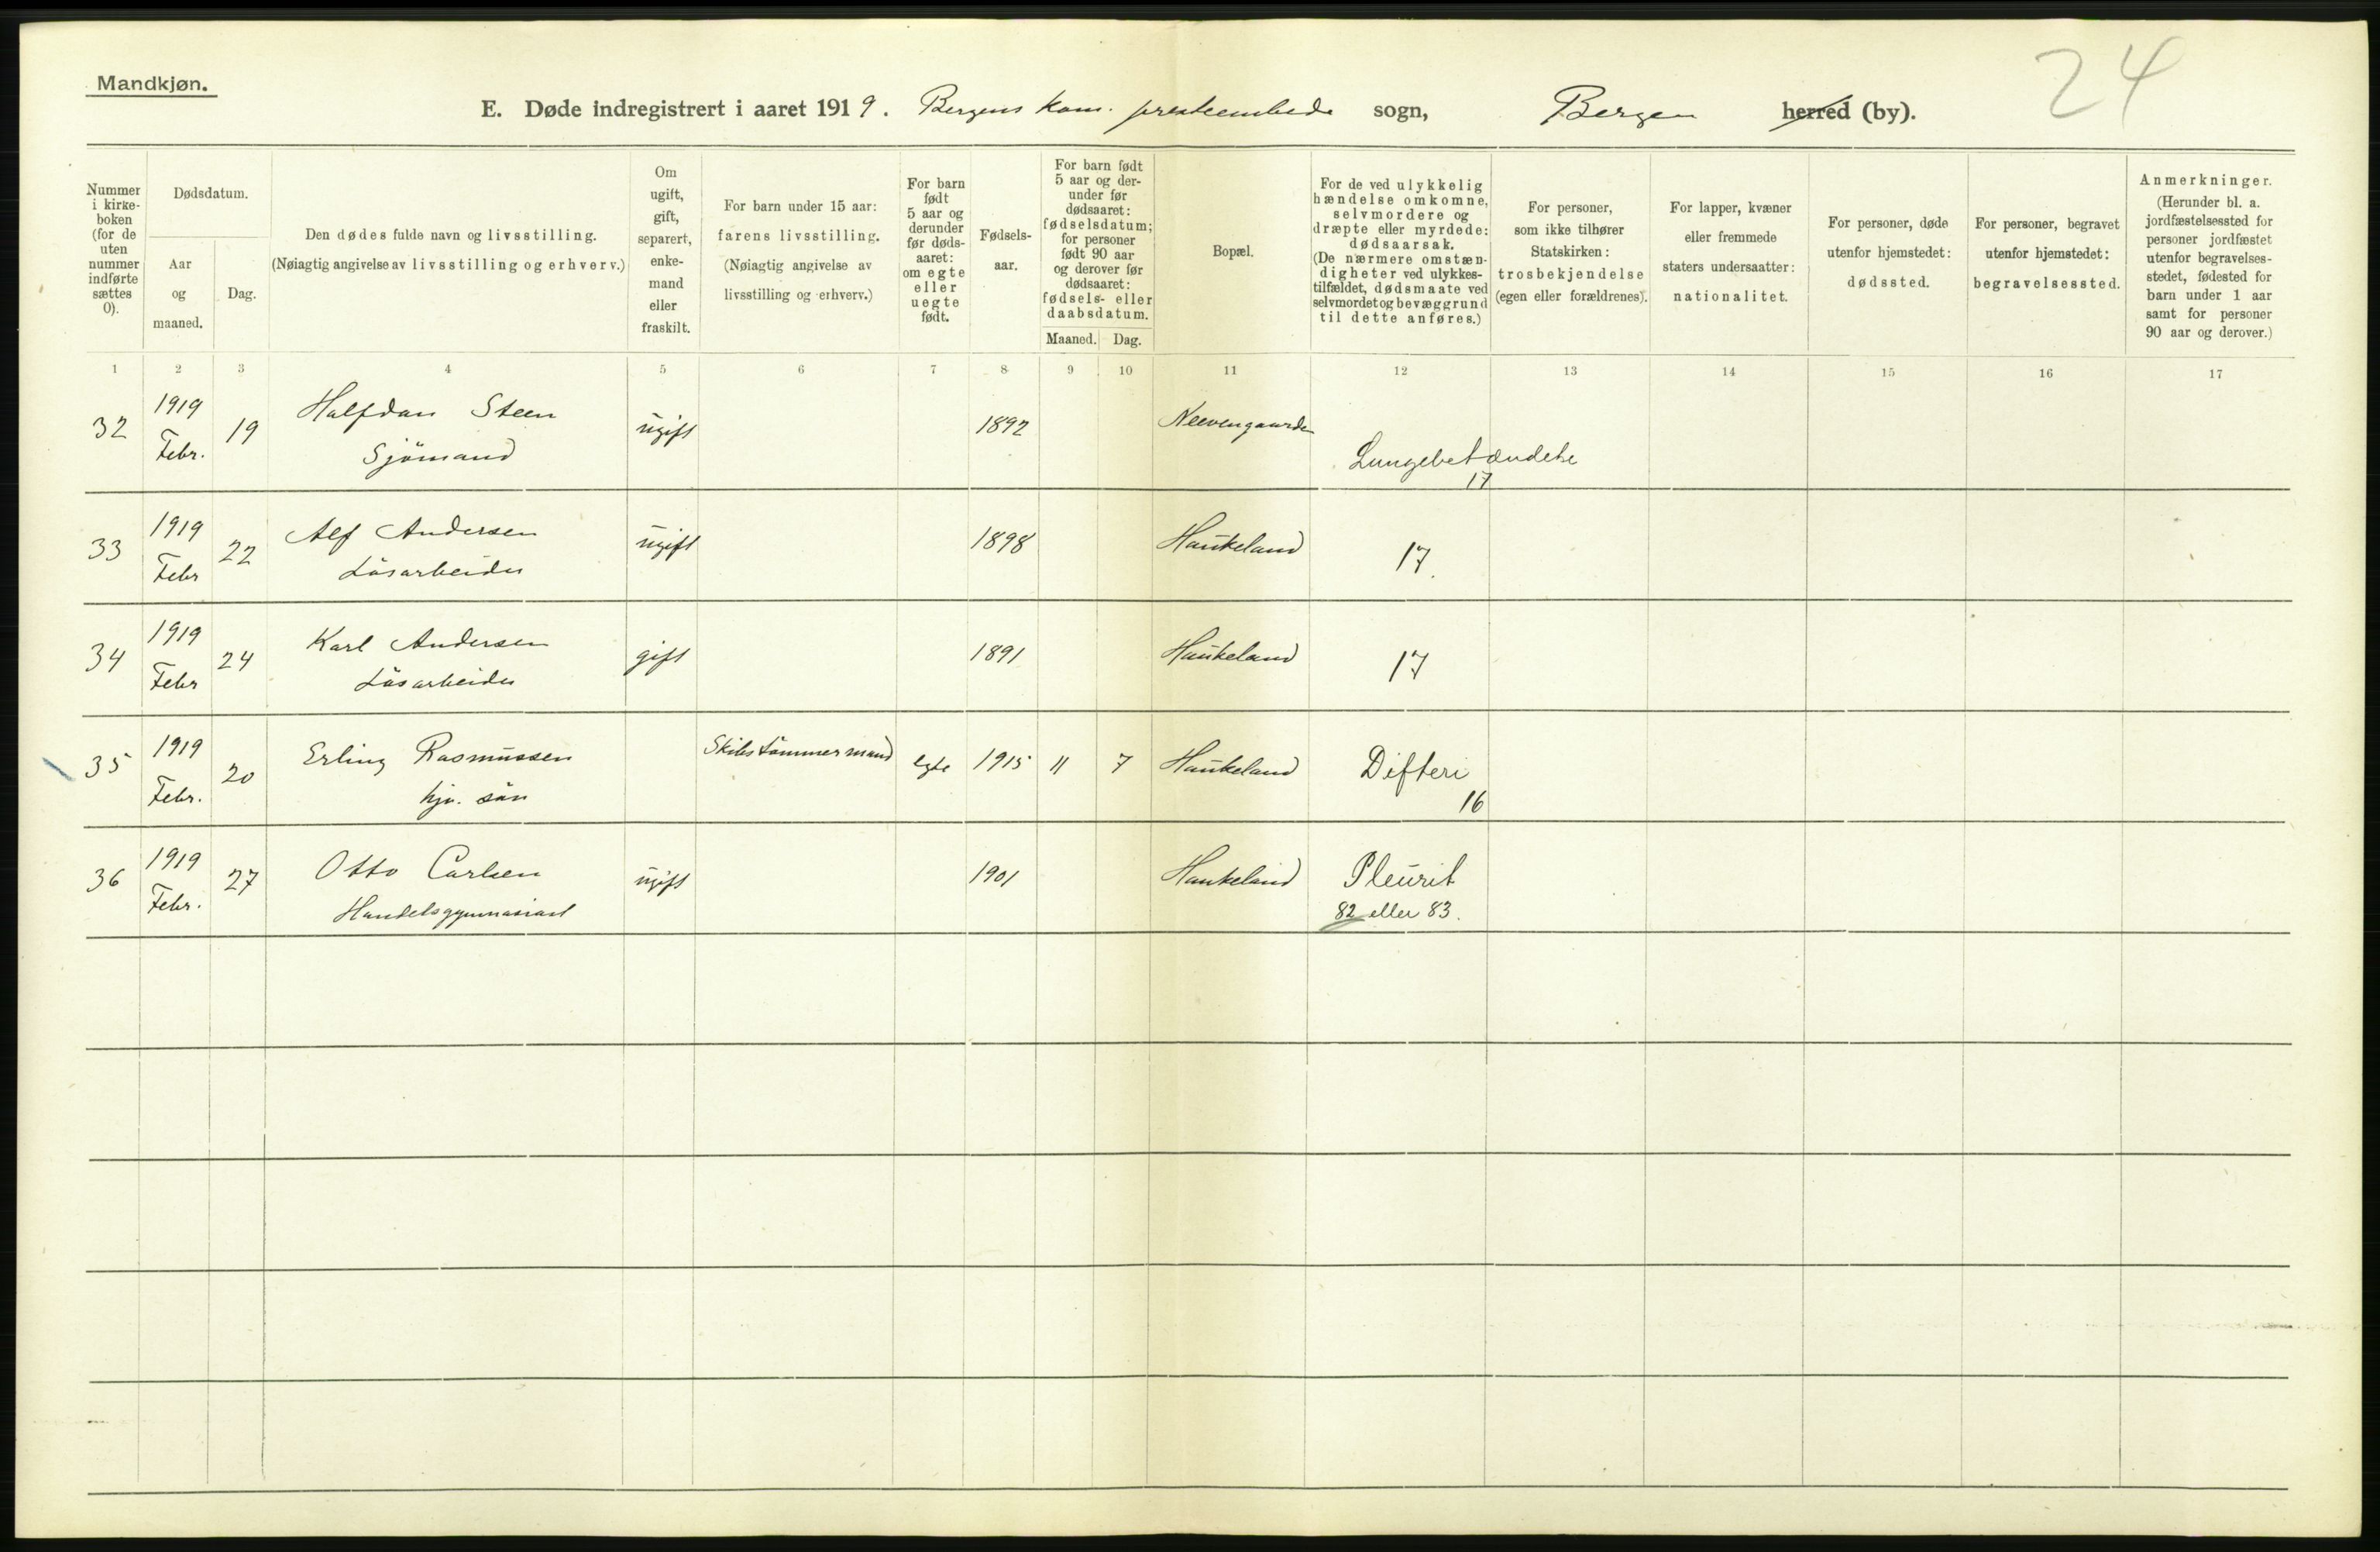 Mandkjøn.
24
E. Døde indregistrert i aaret 1919. Bergens kom. presteembede sogn, Bergen herred (by).
Nummer i kirke-boken (for de uten nummer indførte sættes 0).
Dødsdatum.
Aar og maaned.
Dag.
Den dødes fulde navn og livsstilling.
(Nøiagtig angivelse av livsstilling og erhverv.)
Om ugift, gift, separert, enke-mand eller fraskilt.
For barn under 15 aar: farens livsstilling. (Nøiagtig angivelse av livsstilling og erhverv.)
For barn født 5 aar og derunder før døds-aaret: om egte eller uegte født.
Fødsels-aar.
For barn født 5 aar og der-under før dødsaaret: fødselsdatum; for personer født 90 aar og derover før dødsaaret: fødsels- eller daabsdatum.
Maaned. Dag.
Bopæl.
For de ved ulykkelig hændelse omkomne, selvmordere og dræpte eller myrdede: dødsaarsak. (De nærmere omstæn-digheter ved ulykkes-tilfældet, dødsmaate ved selvmordet og bevæggrund til dette anføres.)
For personer, som ikke tilhører Statskirken: trosbekjendelse (egen eller forældrenes).
For lapper, kvæner eller fremmede staters undersaatter: nationalitet.
For personer, døde utenfor hjemstedet: dødssted.
For personer, begravet utenfor hjemstedet: begravelsessted.
Anmerkninger. (Herunder bl. a. jordfæstelsessted for personer jordfæstet utenfor begravelses-stedet, fødested for barn under 1 aar samt for personer 90 aar og derover.)
1 2 3 4 5 6 7 8 9 10 11 12 13 14 15 16 17
32 1919 Febr. 19 Halfdan Steen ugift 1892 Neevengaarden
Sjömand Lungebetændelse
17
33 1919 Febr 22 Alf Andersen ugift 1898 Haukeland 17.
Lösarbeider
34 1919 Febr 24 Karl Andersen gift 1891 Haukeland 17
Lösarbeider
35 1919 Febr. 20 Erling Rasmussen Skibstömmermand egte 1915 11 7 Haukeland Difteri
hjv. sön 16
36 1919 Febr. 27 Otto Carlsen ugift 1901 Haukeland Pleurit
Handelsgymnasiast 82 eller 83.